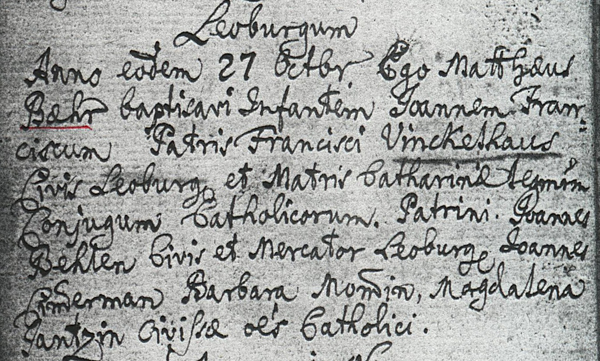 Leoburgum
Anno eodem 27 Octbr Ego Matthæus
Bæhr baptisavi Infantem Joannem Fran-
ciscum Patris Francisci Vinckelhaus
Civis Leoburg et Matris Catharinæ
Conjugum Catholicorum. Patrini. Joannes
Behlen Civis et Mercator Leoburg Joannes
Barbara Magdalena
Jantzin Civissæ oēs Catholici.